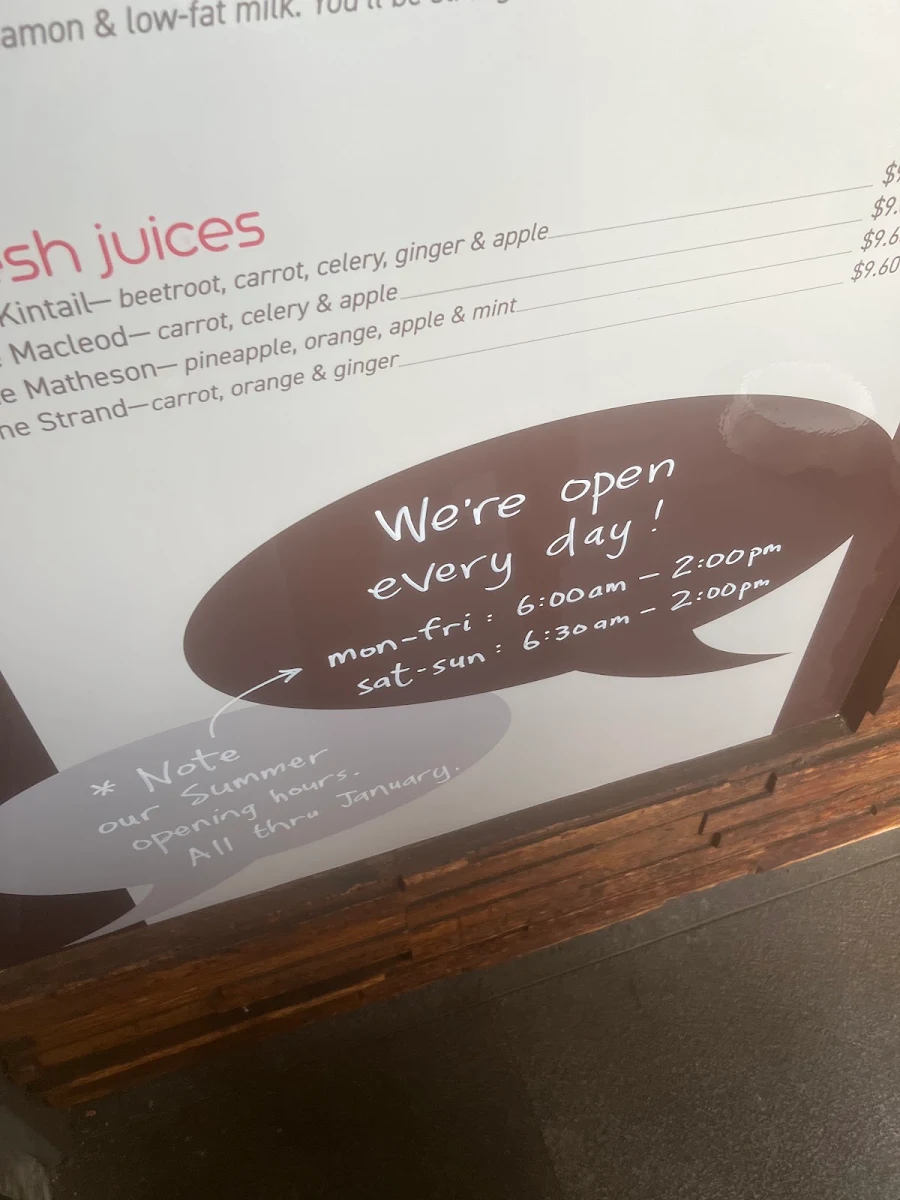 amon & low-fat milk. You'll be
sh juices
Kintail— beetroot, carrot, celery, ginger & apple
Macleod— carrot, celery & apple $9.
e Matheson— pineapple, orange, apple & mint $9.6
ne Strand—carrot, orange & ginger $9.60
We're open
every day!
mon-fri: 6:00am - 2:00pm
sat-sun: 6:30am - 2:00pm
* Note
our Summer
opening hours.
All thru January.